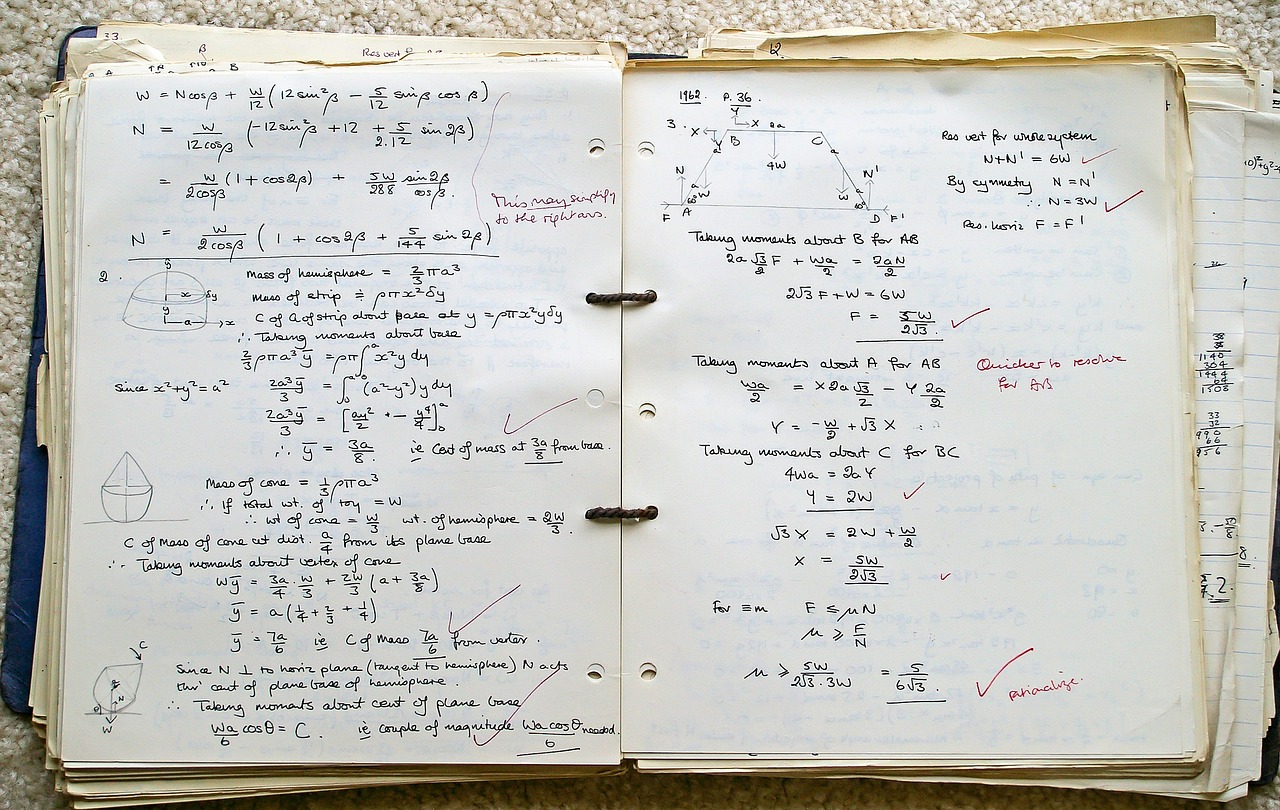 33.
β
Res vert
A B
W = Ncosβ + W/12 (12 sin²β − 5/12 sinβ cosβ)
N = W/12cosβ (−12sin²β + 12 + 5/2.12 sin 2β)
= W/2cosβ (1 + cos2β) + 5W/288 sin2β/cosβ.
This may simplify
to the right ans.
N = W/2cosβ (1 + cos2β + 5/144 sin 2β)
2.
y
x δy
y
a x
Mass of hemisphere = 2/3 πa³
Mass of strip ≡ ρπx²δy
C of G of strip about base at y = ρπx²yδy
∴ Taking moments about base
2/3 ρπa³ȳ = ρπ∫₀ᵃ x²y dy
Since x²+y² = a² 2a³ȳ/3 = ∫₀ᵃ (a²−y²) y dy
2a³ȳ/3 = [ay²/2 − y⁴/4]₀ᵃ
∴ ȳ = 3a/8 ie Cent of mass at 3a/8 from base.
Mass of cone = 1/3 ρπa³
∴ If total wt. of toy = W
∴ wt of cone = W/3 wt. of hemisphere = 2W/3.
C of Mass of cone at dist. a/4 from its plane base
∴ Taking moments about vertex of cone
Wȳ = 3a/4 · W/3 + 2W/3 (a + 3a/8)
ȳ = a(1/4 + 2/3 + 1/4)
ȳ = 7a/6 ie C of Mass 7a/6 from vertex.
C
N
θ
W
Since N ⊥ to horiz plane (tangent to hemisphere) N acts
thro' cent of plane base of hemisphere.
∴ Taking moments about cent of plane base
Wa/6 cosθ = C. ie couple of magnitude Wa cosθ/6 needed.
12.
1962. P. 36.
3. X Y X 2a
B C
a a
4W
N N'
a W W a
60° 60°
F A D F'
Res vert for whole system
N + N' = 6W
By symmetry N = N'
∴ N = 3W
Res. horiz F = F'
Taking moments about B for AB
2a √3/2 F + Wa/2 = 2aN/2
2√3 F + W = 6W
F = 5W/2√3.
Taking moments about A for AB
Quicker to resolve
for AB
Wa/2 = X 2a √3/2 − Y 2a/2
Y = −W/2 + √3 X
Taking moments about C for BC
4Wa = 2aY
Y = 2W
√3 X = 2W + W/2
X = 5W/2√3
For ≡m F ≤ μN
μ ≥ F/N
μ ≥ 5W/2√3 · 3W = 5/6√3.
rationalize.
38
38
1140
304
1444
64
1508
33
32
990
66
956
8.
2.